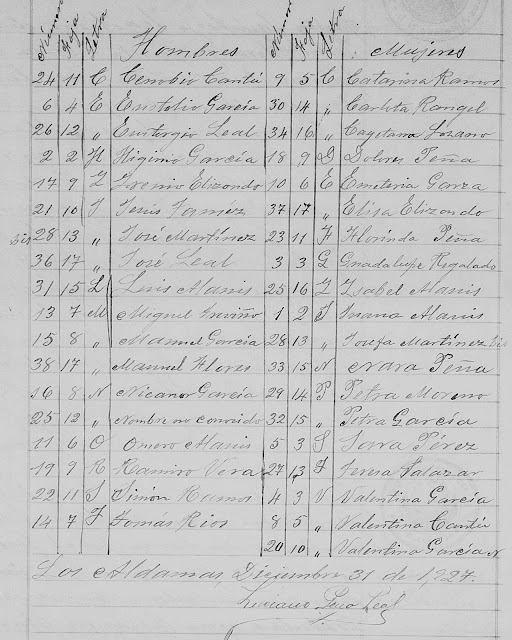 Número Foja Letra Hombres Número Foja Letra Mujeres
24 11 C Cenobio Cantú 9 5 C Catarina Ramos
6 4 E Eustolio García 30 14 „ Carlota Rangel
26 12 „ Eustorgio Leal 34 16 „ Cayetana Lozano
2 2 H Higinio García 18 9 D Dolores Peña
17 9 I Irenio Elizondo 10 6 E Emeteria Garza
21 10 J Jesús Tamez 37 17 „ Elisa Elizondo
Bis 28 13 „ José Martínez 23 11 F Florinda Peña
36 17 „ José Leal 3 3 G Guadalupe Regalado
31 15 L Luis Alanis 25 16 I Ysabel Alanis
13 7 M Miguel Treviño 1 2 J Juana Alanis
15 8 „ Manuel García 28 13 „ Josefa Martínez Bis
38 17 „ Manuel Flores 33 15 N Nara Peña
16 8 N Nicanor García 29 14 P Petra Moreno
25 12 „ Nombre no conocido 32 15 „ Petra García
11 6 O Omero Alanis 5 3 S Sara Pérez
19 9 R Ramiro Vera 27 13 T Teresa Salazar
22 11 S Simón Ramos 4 3 V Valentina García
14 7 T Tomás Rios 8 5 „ Valentina Cantú
20 10 „ Valentina García N
Los Aldamas, Diciembre 31 de 1,927.
Luciano Leal